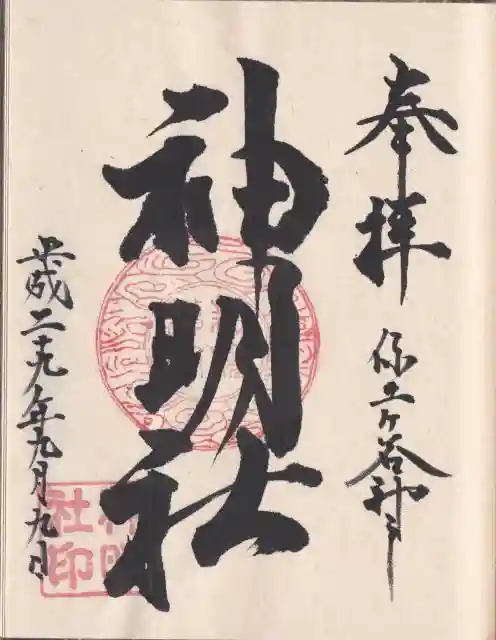 奉拝
保土ヶ谷神戸
神明社
平成二十九年九月九日
神明
社印